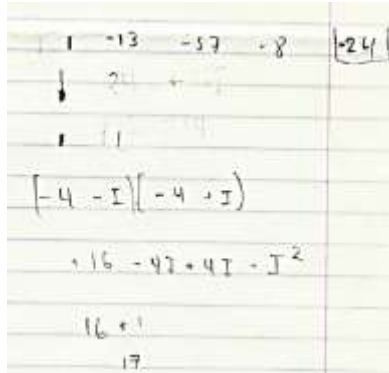 1 -13 -57 -8 |-24|
1 1
(-4 - I)(-4 + I)
+16 - 4I + 4I - I²
16 + 1
17